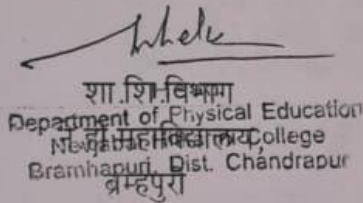 शा.शि.विभाग
Department of Physical Education
महाविद्यालय, College
Bramhapuri, Dist. Chandrapur
ब्रम्हपुरी